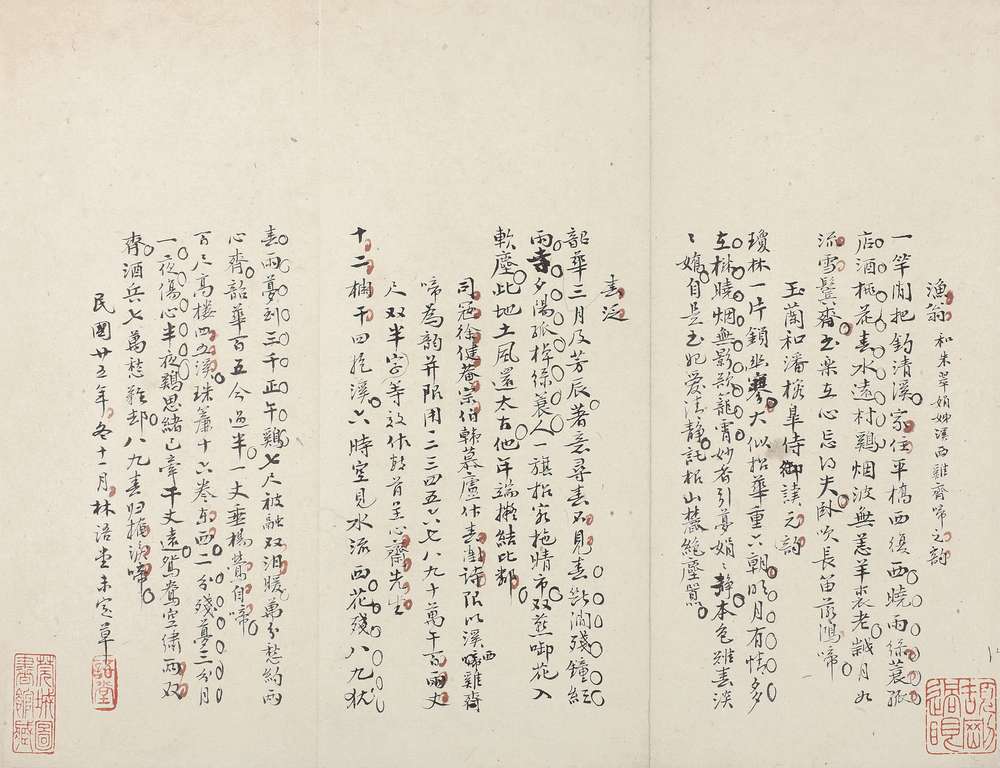 漁翁 和朱翠娟姊溪西雞齊啼之韻
一竿閒把釣清溪家住平橋西復西曉雨綠蓑孤
店酒桃花春水遠村鷄烟波無恙羊裘老歲月如
流雪鬢齊至樂在心忘得失臥吹長笛落鴻啼
玉蘭和潘榕皋侍御讀元韻
瓊林一片鎖幽寥大似招華重六朝明月有情多
在樹曉烟無影欲籠霄妙香引夢娟〻靜本色雖春淡
〻嬌自是玉妃愛清靜託根山麓絕塵囂
春泛
韶華三月及芳辰著意尋春不見春斷澗殘鐘紅
雨寺夕陽孤棹綠蓑人一旗招客拖晴市双燕啣花入
軟塵此地土風還太古他年端擬結比鄰
司寇徐健菴宗伯韓慕廬作春閨詩限以溪西啼雞齊
啼為韻并限用一二三四五六七八九十萬千百兩丈
尺双半字等效作数首呈心齋先生
十二欄干四抱溪六時空見水流西花殘八九猶
春雨夢到三千正午鷄七尺被融双泪暖萬分愁約兩
心齊韶華百五今過半一丈垂楊鶯自啼
百尺高樓四五溪珠簾十六卷東西二分殘夢三分月
一夜傷心半夜鷄思緒已牽千丈遠鴛鴦空繡兩双
齊酒兵七萬愁難却八九春归擁泣啼
民國廿五年冬十一月林語堂未定草
語堂
莞城圖書館藏
頡剛過眼